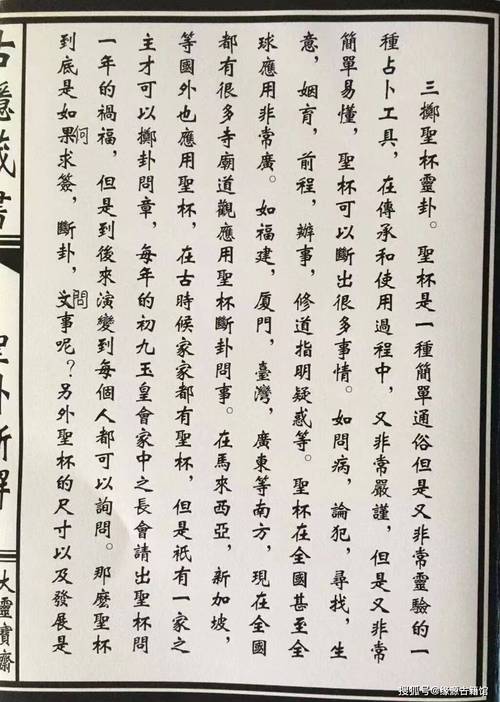 三擲聖杯靈卦。聖杯是一種簡單通俗但是又非常靈驗的一
種占卜工具，在傳承和使用過程中，又非常嚴謹，但是又非常
簡單易懂，聖杯可以斷出很多事情。如問病，論犯，尋找，生
意，姻育，前程，辦事，修道指明疑惑等。聖杯在全國甚至全
球應用非常廣。如福建，廈門，臺灣，廣東等南方，現在全國
都有很多寺廟道觀應用聖杯斷卦問事。在馬來西亞，新加坡，
等國外也應用聖杯，在古時候家家都有聖杯，但是祇有一家之
主才可以擲卦問章，每年的初九玉皇會家中之長會請出聖杯問
一年的禍福，但是到後來演變到每個人都可以詢問。那麽聖杯
何
問
到底是如果求簽，斷卦，文事呢？另外聖杯的尺寸以及發展是
古隱藏書
聖卦
大靈寶齋
搜狐号@缘源古籍馆